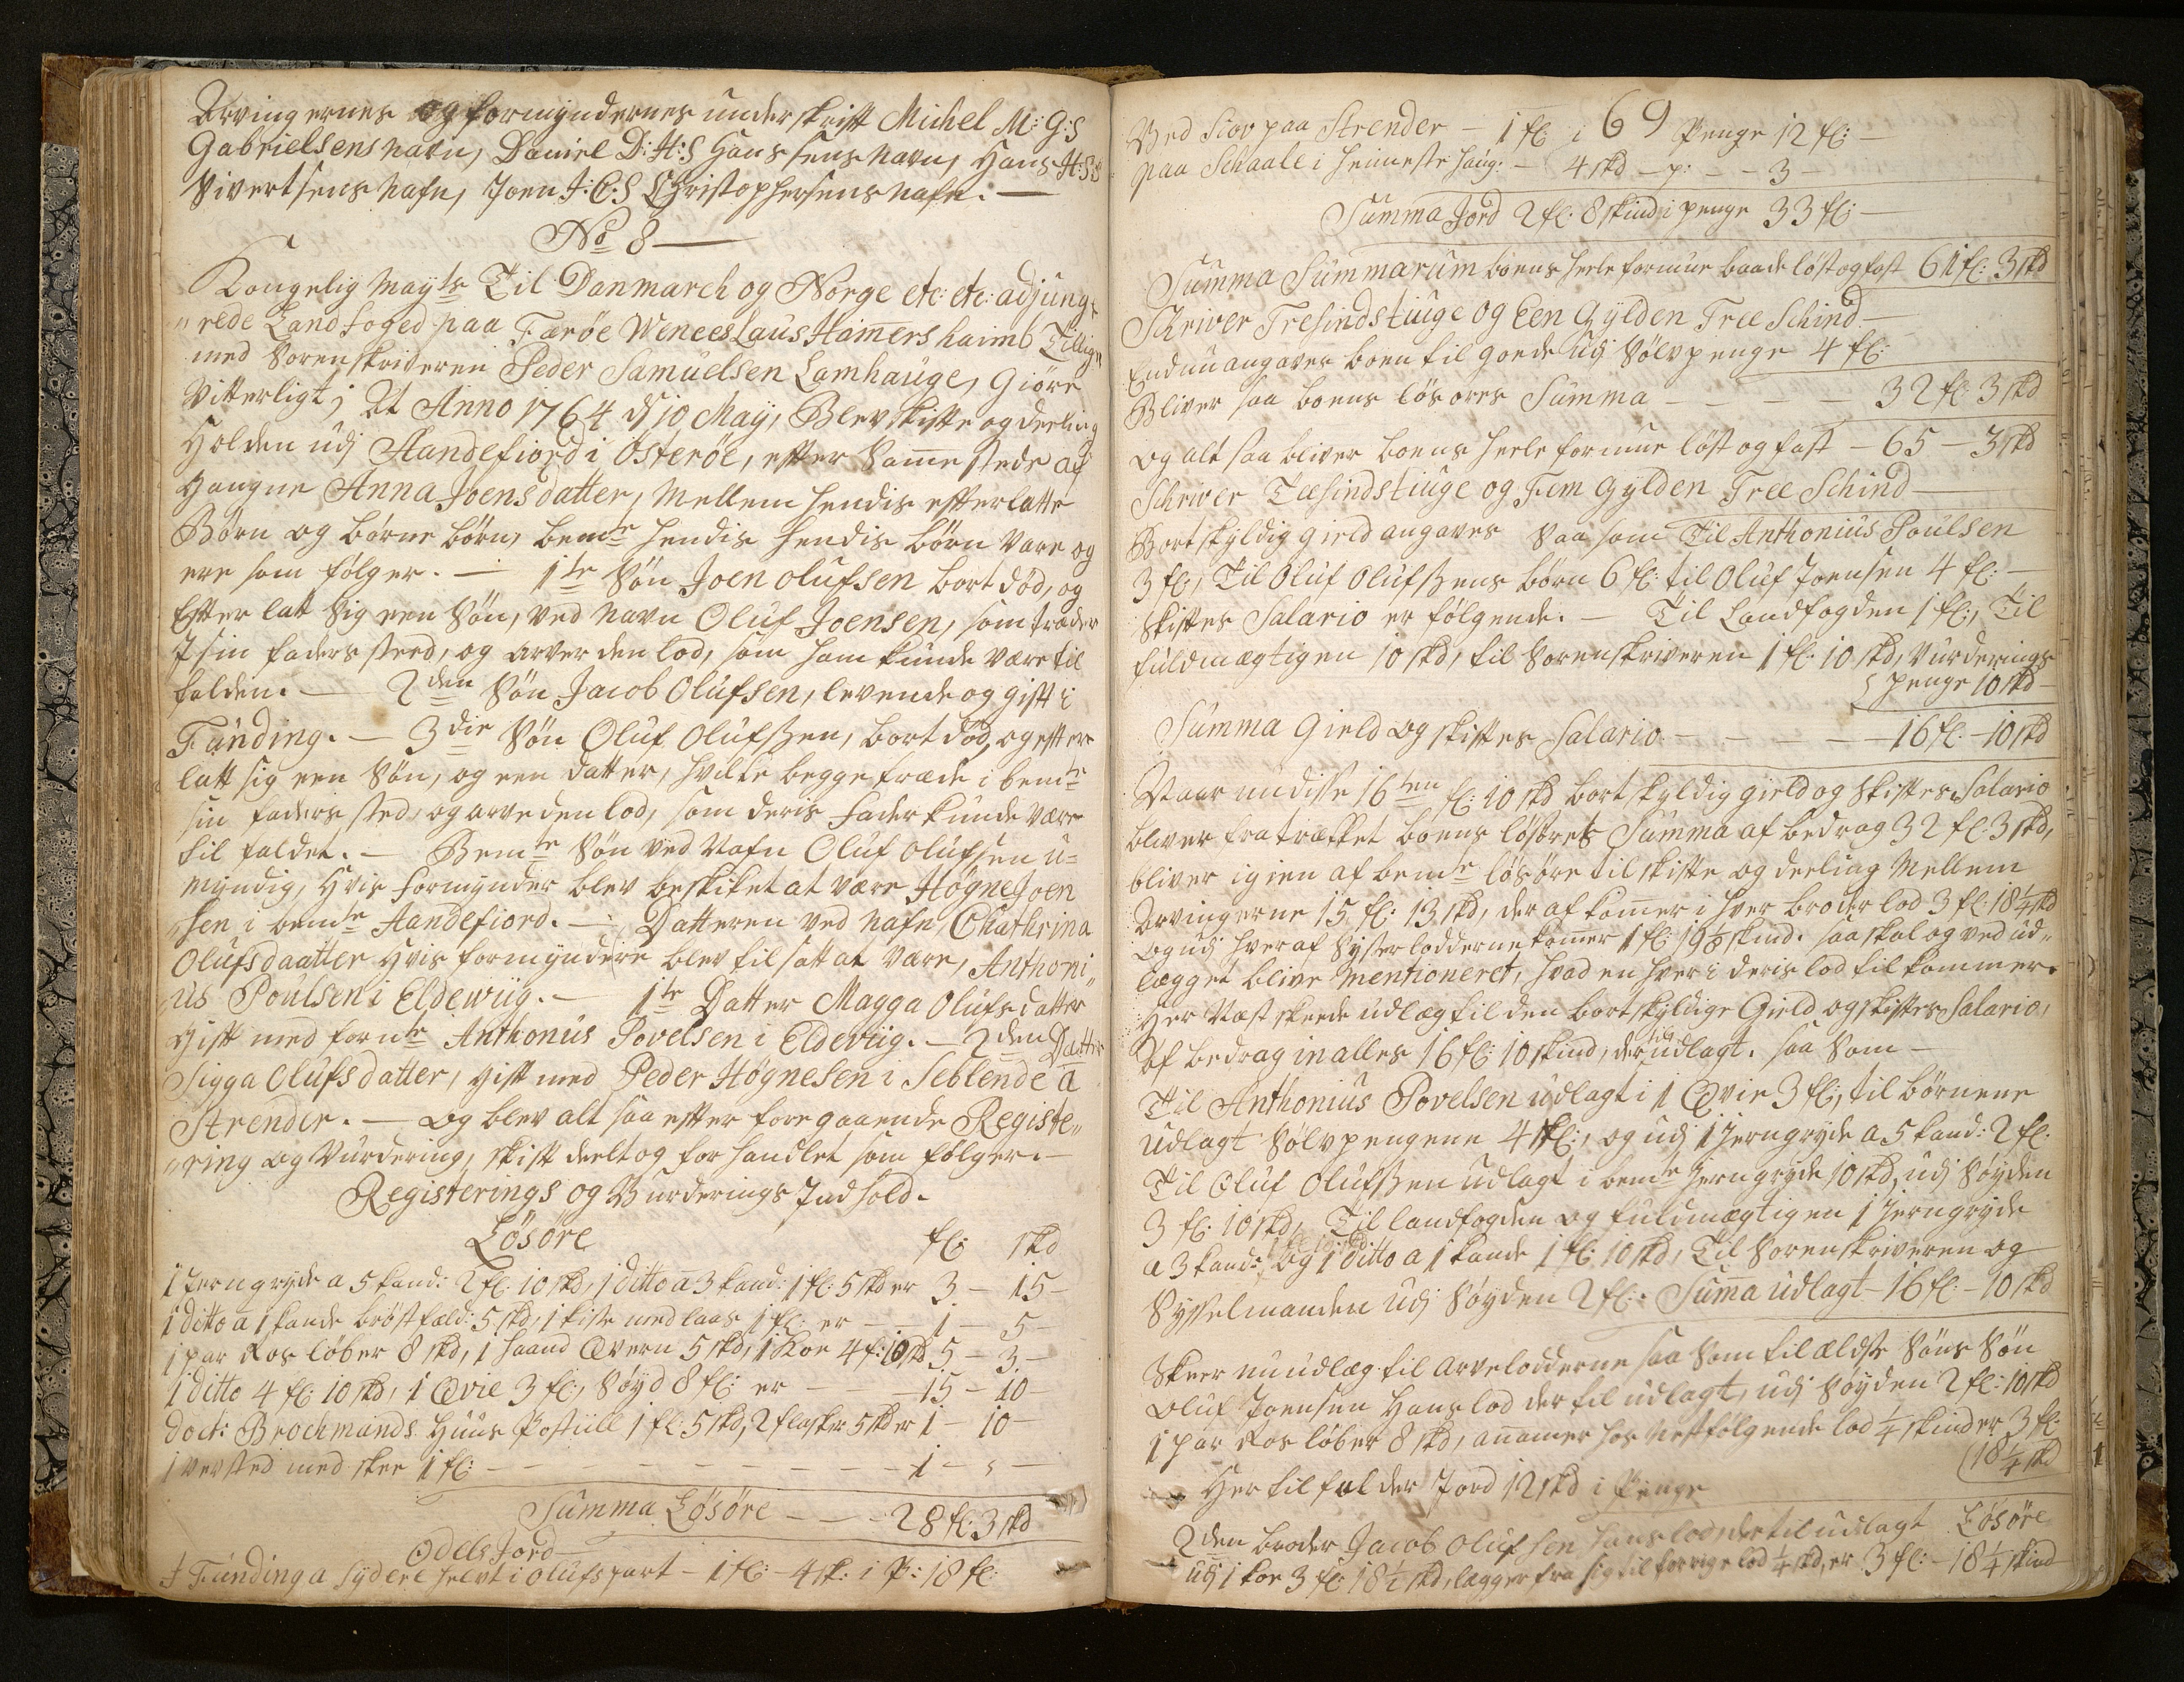 Arvingernes og formyndernes underskrift Michel M: G: S
Gabrielsens navn, Daniel D: H: S Hanssens navn, Hans H: S: S
Sivertsens nafn, Joen J: C: S Christophersens nafn. —
No 8 —
Kongelig Mayts Til Danmarch og Norge etc: etc: adjung„
„rede Landfoged paa Færøe Wenceslaus Hamershaimb Tillig„
med Sorenskriveren Peder Samuelsen Lamhauge, Giöre
Vitterligt; At Anno 1764 d 10 May, Blev skifte og deeling
Holden udj Aandefiord i Österöe, efter Samme steds af
Gangne Anna Joensdatter, Mellem hendis efterlatte
Börn og börne börn, bemte hendis hendis börn vare og
ere som fölger. — 1te Sön Joen olufsen bort död, og
Efter latt Sig een Sön, ved navn Oluf Joensen, som træder
I sin faders sted, og arver den lod, som ham kunde være til
falden. — 2den Sön Jacob Olufsen, levende og gift i
Funding. — 3die Sön Oluf Olufszen, bort död, og efter
latt sig een Sön, og een datter, hvilke begge træde i bemte
sin faders sted, og arve den lod, som deris fader kunde være
til falden. — Bemte Sön ved Nafn Oluf olufsen u=
myndig, Hvis formynder blev beskiket at være Högne Joen
„sen i bemte Aandefiord. — Datteren ved nafn Chathrina
Olufsdaatter Hvis formyndere blev tilsatt at være, Anthoni„
us Poulsen i Eldewiig. — 1te Datter Magga Olufsdatter
gift med fornte Anthonius Povelsen i Eldeviig. — 2den Datter
Sigga Olufsdatter, gift med Peder Högnesen i Seblende a
Strender. — og blev alt saa efter foregaaende Registe„
„ring og Vurdering, skift deelt og forhandlet som fölger. —
Registerings og Vurderings Indhold.
Lösöre fl: skd
1 Jerngryde a 5 kand: 2 fl: 10 skd, 1 ditto a 3 kand: 1 fl: 5 skd er 3 — 15 —
1 ditto a 1 kande bröstfæld: 5 skd, 1 kiste med laas 1 fl: er — 1 — 5
1 par Ros löber 8 skd, 1 haand Qvern 5 skd, 1 Koe 4 f: 10 skd 5 — 3 —
1 ditto 4 fl: 10 skd, 1 Qvie 3 fl:, Söyd 8 fl: er — — 15 — 10 —
doct: Brochmands Huus Postill 1 fl: 5 skd, 2 flasker 5 skd er 1 — 10 —
1 vevsted med skee 1 fl: — — — — — — 1 — „ —
Summa Lösöre — — — 28 fl: 3 skd
Odels Jord
I Funding a Sydere helvt i Olufs part — 1 fl: — 4 sk: i P: 18 fl:
69
Ved Siov paa Strender — 1 fl: i Penge 12 fl: —
paa Schaale i heimeste haug: — 4 skd — p: — — 3 —
Summa Jord 2 fl: 8 skind i penge 33 fl: —
Summa Summarum boens heele formue baade löst og fast 61 fl: 3 skd
Schriver Tresindstiuge og Een Gylden Tree Schind —
Endnu angaves boen til goede Udj Sölvpenge 4 fl:
Bliver saa boens lösöres Summa — — — — 32 fl: 3 skd
og alt saa bliver boens heele formue löst og fast — 65 — 3 skd
Schriver Tresindstiuge og Fem Gylden Tree Schind —
Bortskyldig gield angaves saa som Til Anthonius Poulsen
3 fl:, Til Oluf Olufszens börn 6 fl: til Oluf Joensen 4 fl: —
Skiftes Salario er fölgende. — Til Landfogden 1 fl:, Til
fuldmægtigen 10 skd, til Sorenskriveren 1 fl: 10 skd, Vurderings
penge 10 skd —
Summa Gield og skiftes Salario — — — — 16 fl: — 10 skd
Naar nu disse 16ten fl: 10 skd bortskyldig gield og skiftes Salario
bliver fratrækket boens lösörets Summa af bedrag 32 fl: 3 skd,
bliver igien af bemte lösöre til skifte og deeling Mellem
Arvingerne 15 fl: 13 skd, der af kommer i hver broder lod 3 fl: 18 1/4 skd
og udj hver af Syster lodderne kommer 1 fl: 19 1/8 skind. saa skal og ved ud„
lægget blive mentioneret, hvad en hver i deris lod tilkommer.
Her Næst skeede udlæg til den bortskyldige Gield og skiftes Salario,
Af bedrag in alles 16 fl: 10 skind, dertil udlagt. saa Som —
Til Anthonius Povelsen udlagt i 1 Qvie 3 fl:, til börnene
udlagt Sölvpengene 4 fl:, og udj 1 Jerngryde a 5 kand: 2 fl:
Til Oluf Olufszen udlagt i bemte Jerngryde 10 skd, udj Söyden
3 fl: 10 skd, Til landfogden og fuldmægtigen 1 Jerngryde
a 3 kand: og 1 ditto a 1 kande 1 fl: 10 skd, Til Sorenskriveren og
Sysselmanden udj Söyden 2 fl:. Summa udlagt — 16 fl: — 10 skd
Skeer nu udlæg til arvelodderne saa Som til ældste Söns Sön
Oluf Joensen Hans lod dertil udlagt, udj Söyden 2 fl: 10 skd
1 par Ros löber 8 skd, annamer hos nestfölgende lod 1/4 skind er 3 fl:
(18 1/4 skd
Her til falder Jord 12 skd i Penge
2den broder Jacob Olufsen hans lod, dertil udlagt Lösöre
udj 1 koe 3 fl: 18 1/2 skd, lægger fra sig til forrige lod 1/4 skd, er 3 fl: — 18 1/4 skind